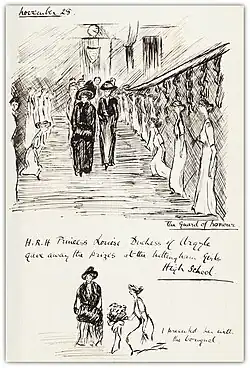 november 28.
The Guard of honour
H.R.H Princess Louise Duchess of Argyle
gave away the prizes at the Nottingham Girls
High School
I presented her with
the bouquet